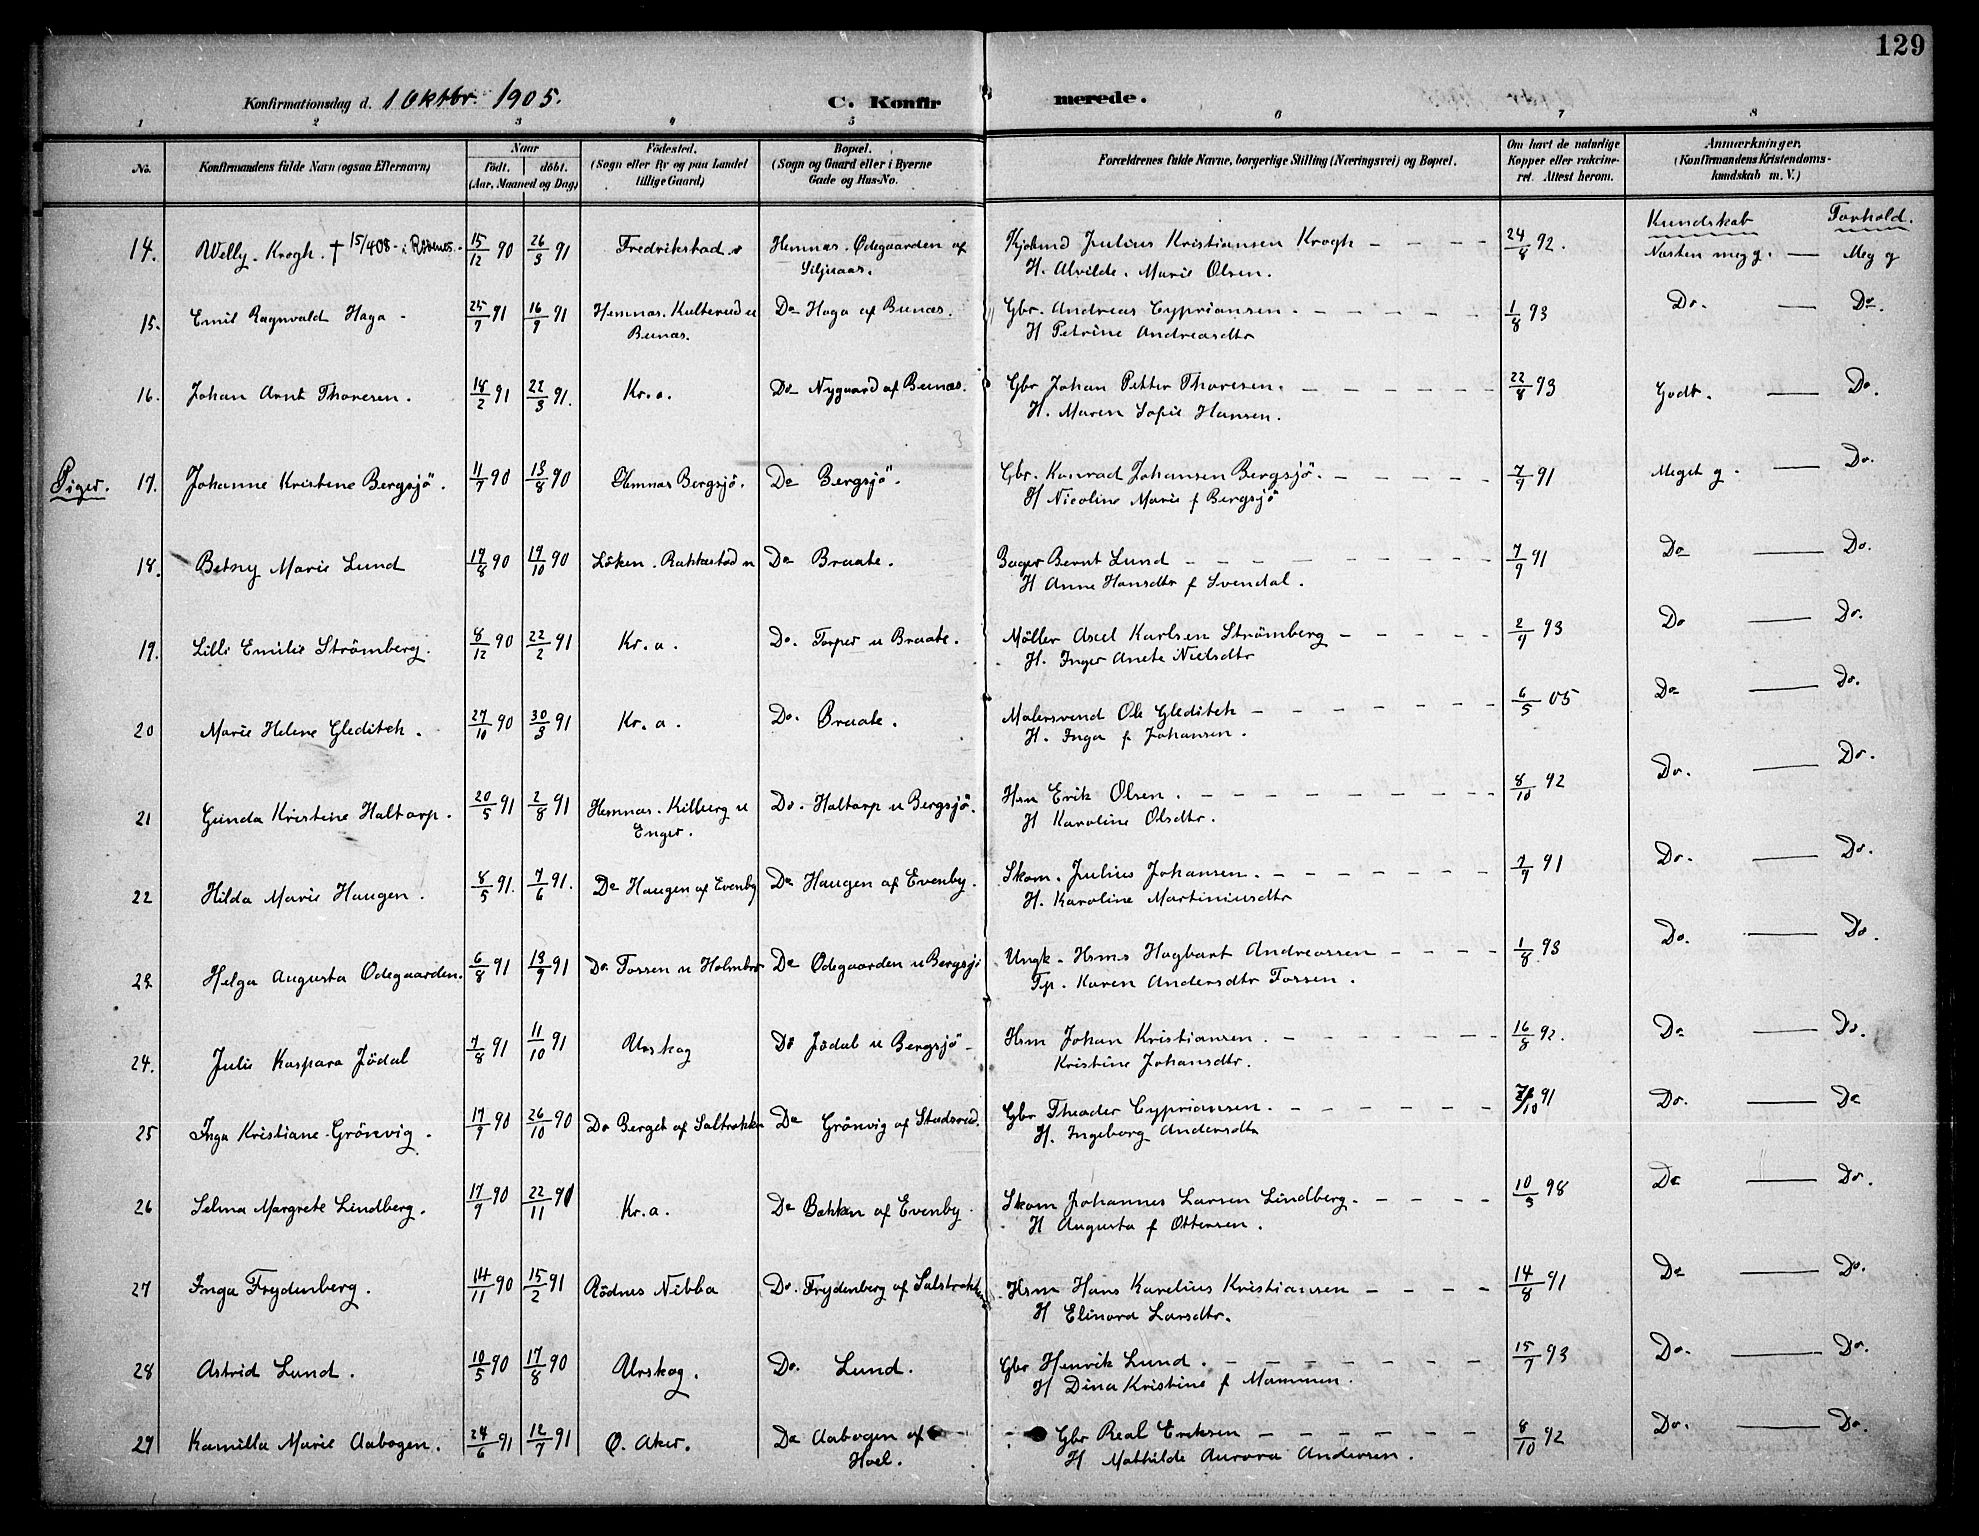 129
Konfirmationsdag d. 1 Oktbr. 1905. C. Konfirmerede.
1 2 3 4 5 6 7 8
No. Konfirmandens fulde Navn (ogsaa Efternavn) Naar født. døbt. (Aar, Maaned og Dag) Fødested. (Sogn eller By og paa Landet tillige Gaard) Bopæl. (Sogn og Gaard eller i Byerne Gade og Hus-No. Forældrenes fulde Navne, borgerlige Stilling (Næringsvei) og Bopæl. Om havt de naturlige Kopper eller vakcineret. Attest herom. Anmærkninger. (Konfirmandens Kristendomskundskab m. V.)
Kundskab Forhold.
14. Welly Krogh. † 15/4 08 i Rødenes. 15/12 90 26/3 91 Fredrikstad Hemnæs. Ödegaarden af Kjöbmd Julius Kristiansen Krogh 24/8 92. Næsten meg g. — Meg g
Siljuaas. H. Alvilde. Marie Olsen.
15. Emil Ragnvald Haga 25/7 91 16/9 91 Hemnæs. Kulterud u Do Haga af Bunæs. Gbr. Andreas Cypriansen 1/8 93 Do. — Do.
Bunæs. H Petrine Andreasdtr
16. Johan Arnt Thoresen. 18/2 91 22/3 91. Kr.a. Do Nygaard af Bunæs. Gbr Johan Petter Thoresen. 22/8 93 Godt. — Do.
H. Maren Sofie Hansen.
Piger. 17. Johanne Kristine Bergsjö. 11/7 90 13/8 90 Hemnæs Bergsjö. Do Bergsjö. Gbr. Konrad Johansen Bergsjö. 7/9 91 Meget g. — Do.
H Nicoline Marie f Bergsjö
18. Betsny Marie Lund 19/8 90 19/10 90 Löken. Rakkestad u Do Braate. Bager Bernt Lund 7/9 91 Do — Do.
H Anne Hansdtr f Svendal.
19. Lilli Emilie Strömberg. 8/12 90 22/2 91 Kr.a. Do. Torper u Braate. Möller Axel Karlsen Strömberg 2/9 93 Do — Do.
H. Inger Anete Nielsdtr
20 Marie Helene Gleditch. 27/10 90 30/3 91 Kr.a. Do. Braate. Malersvend Ole Gleditch 6/5 05 Do — Do.
H. Inga f Johansen.
21 Gunda Kristine Haltorp. 20/5 91 2/8 91 Hemnæs. Kilburg u Do. Haltorp u Bergsjö. Hsm Erik Olsen. 8/10 92 Do. — Do.
Enger. H Karoline Olsdtr.
22 Hilda Marie Haugen. 8/5 91. 7/6 91. Do Haugen af Evenby Do Haugen af Evenby. Skom. Julius Johansen. 7/9 91 Do. — Do.
H. Karoline Martiniusdtr
23. Helga Augusta Ödegaarden. 6/8 91 13/9 91 Do. Fossen u Holmbro Do Ödegaarden u Bergsjö Ungk. Hsms Hagbart Andreassen 1/8 93 Do. — Do.
Tp. Karen Andersdtr Fossen.
24. Julie Kaspara Jödal 7/8 91 11/10 91 Urskog Do Jödal u Bergsjö Hsm Johan Kristiansen. 16/8 92. Do — Do.
Kristine Johansdtr.
25 Inga Kristiane Grönvig. 17/9 90 26/10 90 Do Berget af Saltrokken Do Grönvig af Stadsrud. Gbr Theader Cypriansen. /10 91 Do. — Do
H. Ingeborg Andersdtr
26 Selma Margrete Lindberg. 17/9 90 22/11 90 Kr.a. Do Bakken af Evenby. Skom Johannes Larsen Lindberg. 10/3 98 Do — Do.
H Augusta f Ottersen.
27 Inga Frydenberg. 14/11 90 15/2 91 Rödnes Nibba Do. Frydenberg af Salstrokken Hsm Hans Karelius Kristiansen 14/8 91 Do — Do.
H Elinora Larsdtr.
28 Astrid Lund. 10/5 90 17/8 90 Urskog. Do. Lund. Gbr Henrik Lund. 15/7 93 Do. — Do.
H Dina Kristine f Mammen.
29 Kamilla Marie Aabogen. 24/6 91 12/7 91 Ö. Aker. Do Aabogen af Gbr Real Eriksen 8/10 92 Do. — Do.
Hoel. H Mathilde Aurora Andersen.